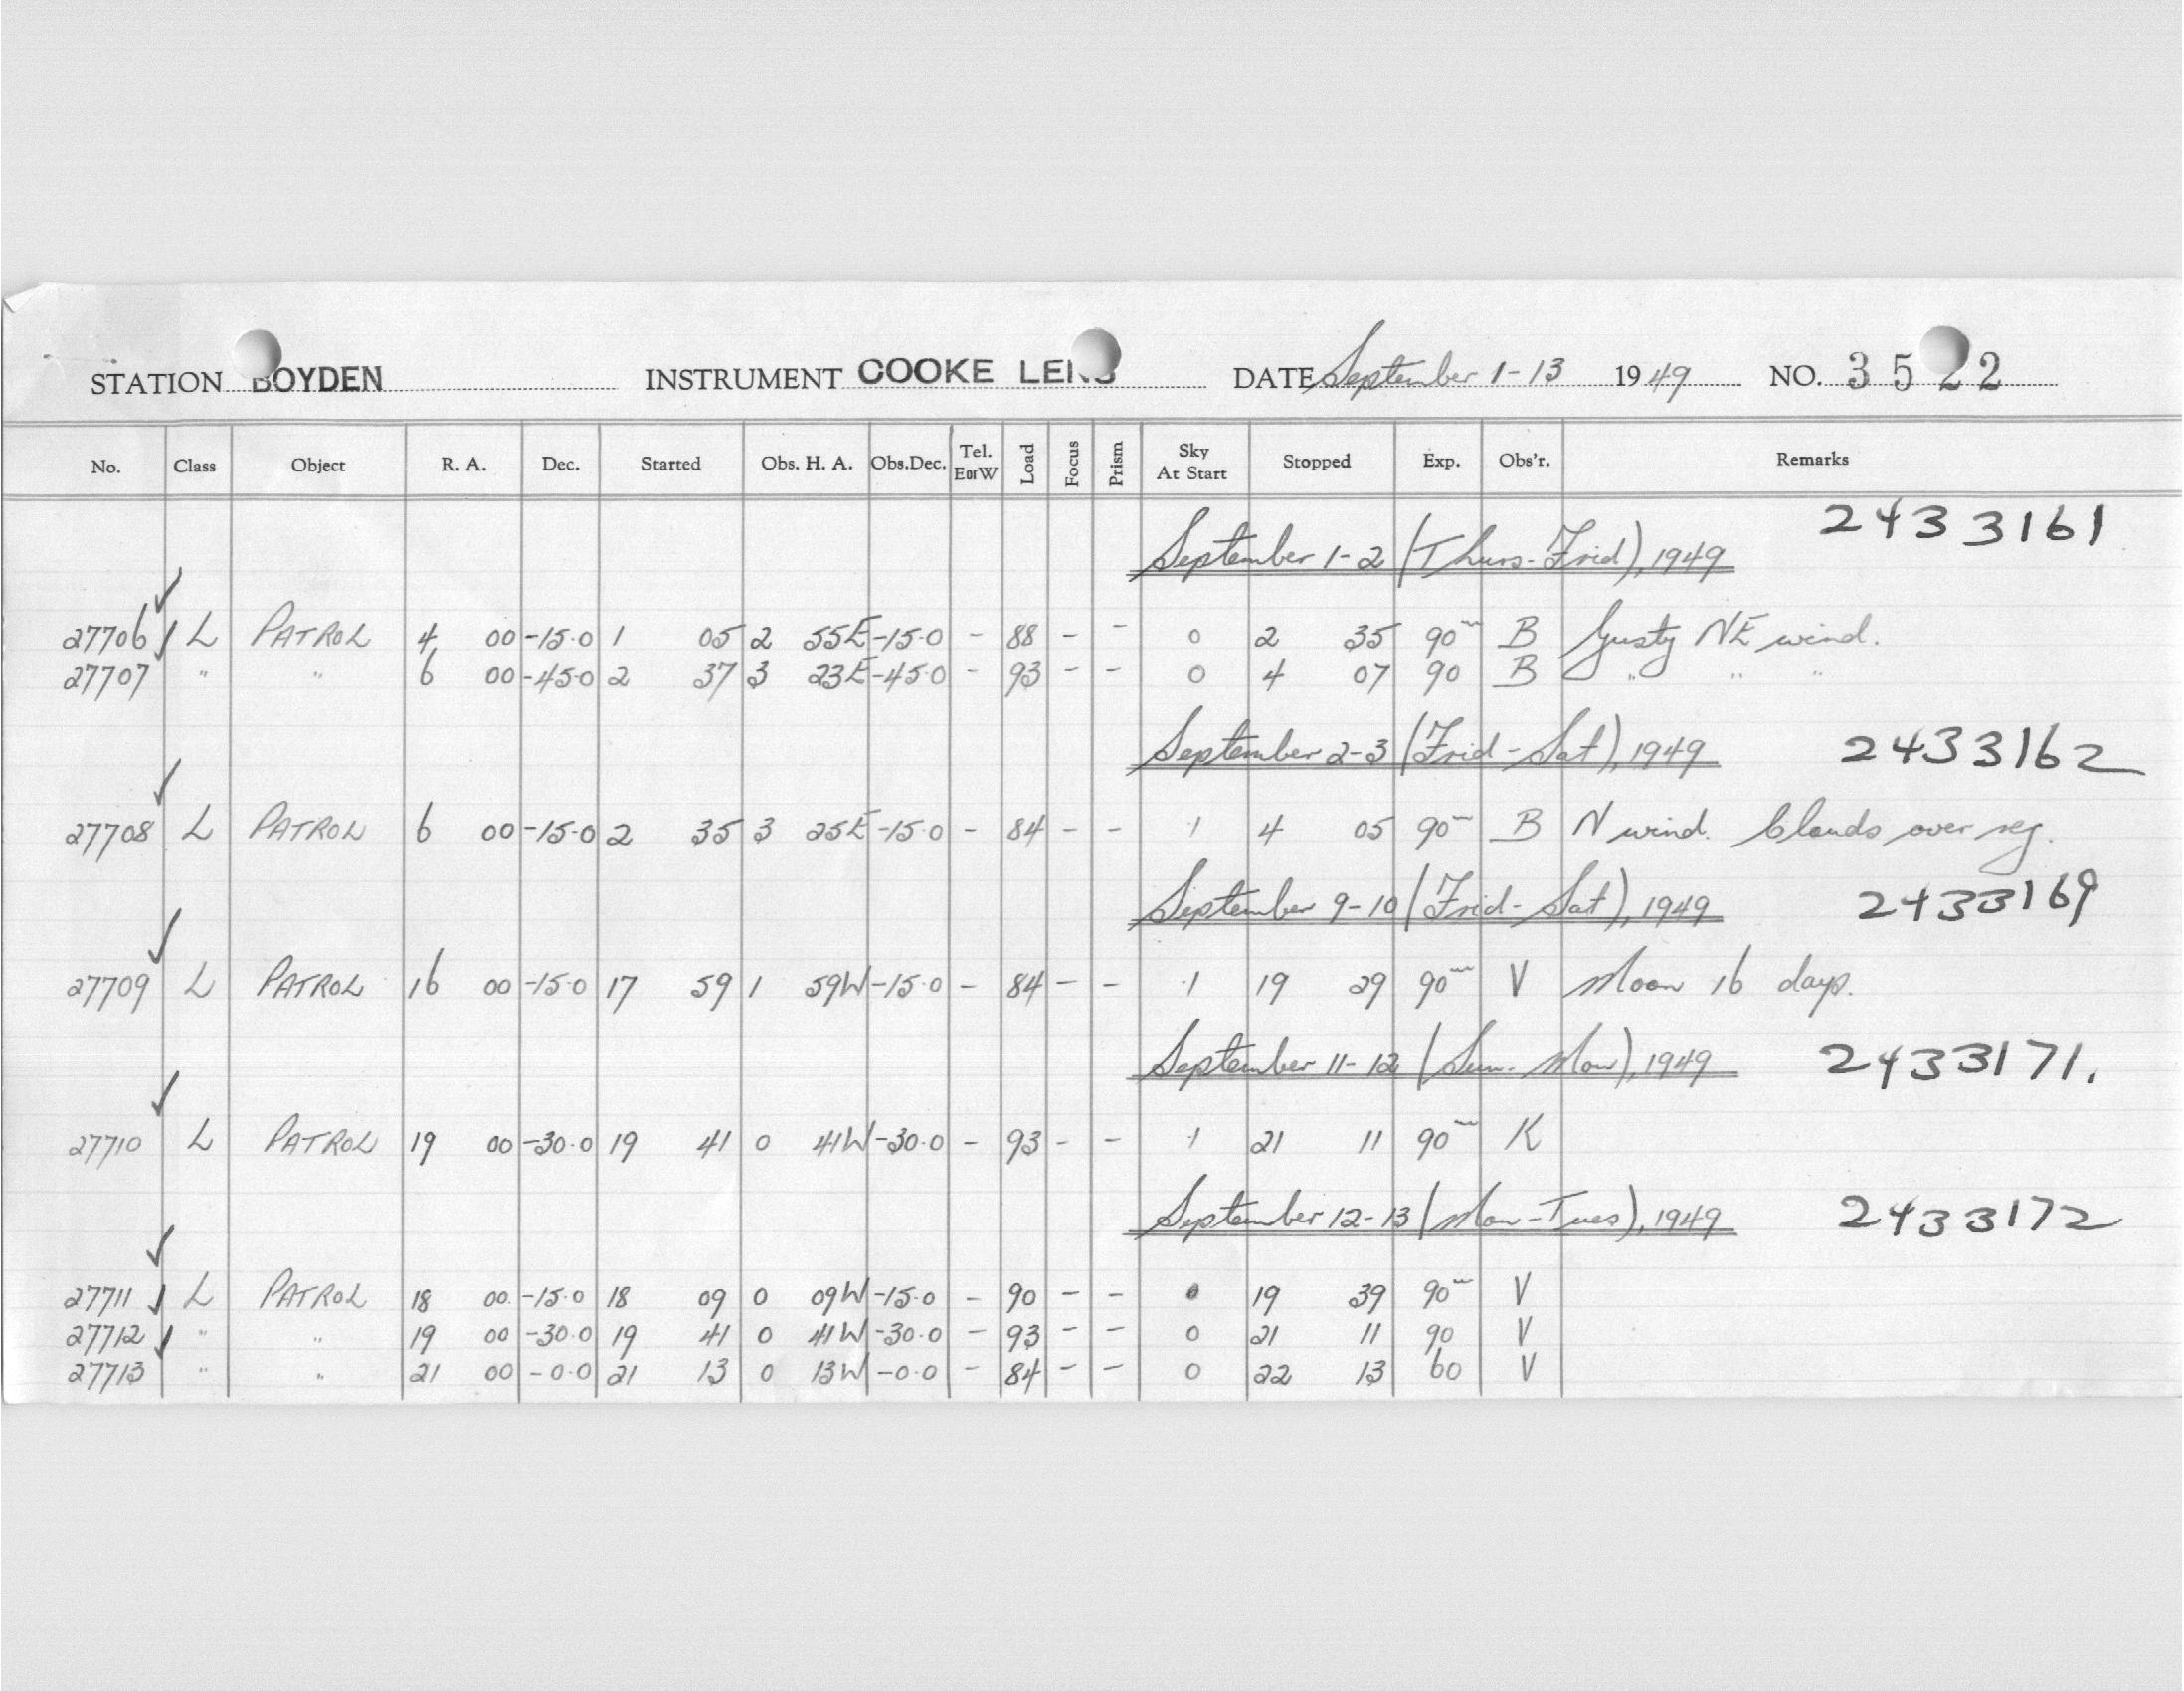 STATION BOYDEN INSTRUMENT COOKE LENS DATE September 1-13 1949 NO. 3522
No. Class Object R. A. Dec. Started Obs. H. A. Obs.Dec. Tel. E or W Load Focus Prism Sky At Start Stopped Exp. Obs'r. Remarks
2433161
September 1-2 (Thurs-Frid), 1949
27706 L PATROL 4 00 -15.0 1 05 2 55E -15.0 - 88 - - 0 2 35 90m B Gusty NE wind.
27707 " " 6 00 -45.0 2 37 3 23E -45.0 - 93 - - 0 4 07 90 B " " "
September 2-3 (Frid-Sat), 1949 2433162
27708 L PATROL 6 00 -15.0 2 35 3 25E -15.0 - 84 - - .1 4 05 90m B N wind. Clouds over reg.
September 9-10 (Frid-Sat), 1949 2433169
27709 L PATROL 16 00 -15.0 17 59 1 59W -15.0 - 84 - - .1 19 29 90m V Moon 16 days.
September 11-12 (Sun-Mon), 1949 2433171.
27710 L PATROL 19 00 -30.0 19 41 0 41W -30.0 - 93 - - .1 21 11 90m K
September 12-13 (Mon-Tues), 1949 2433172
27711 L PATROL 18 00 -15.0 18 09 0 09W -15.0 - 90 - - 0 19 39 90m V
27712 " " 19 00 -30.0 19 41 0 41W -30.0 - 93 - - 0 21 11 90 V
27713 " " 21 00 -0.0 21 13 0 13W -0.0 - 84 - - 0 22 13 60 V